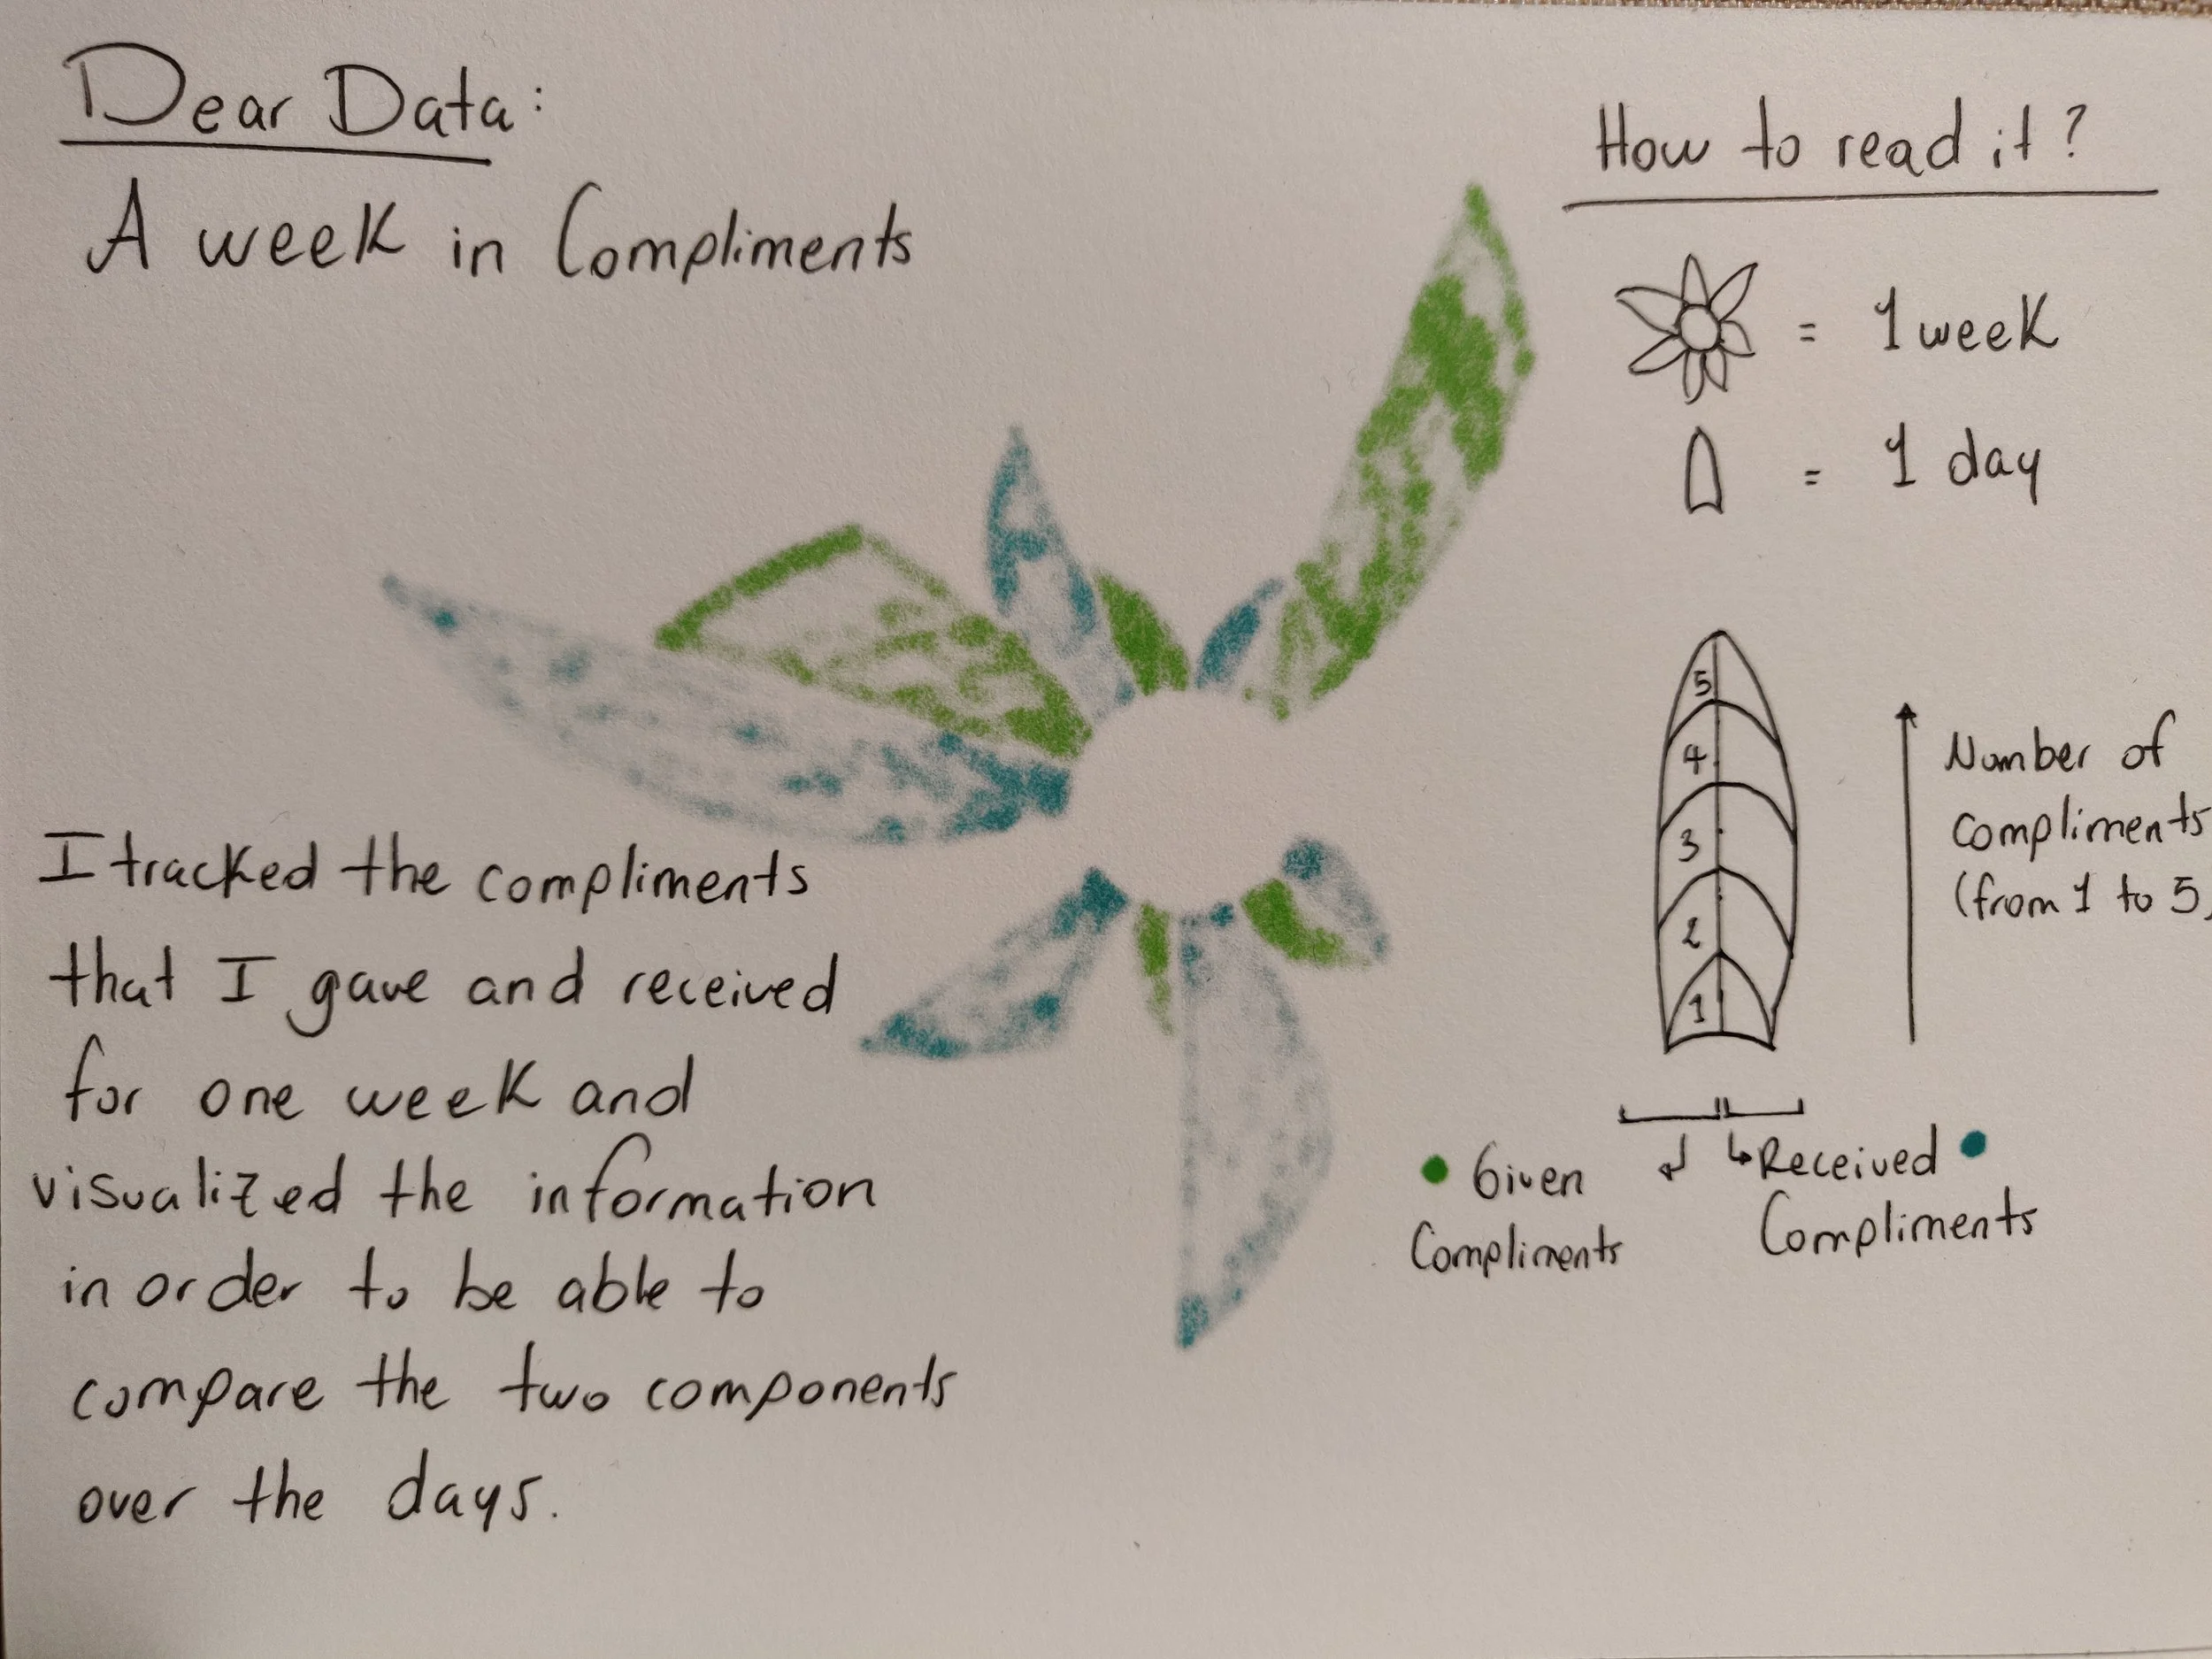 Dear Data:
A week in Compliments
I tracked the compliments
that I gave and received
for one week and
visualized the information
in order to be able to
compare the two components
over the days.
How to read it?
= 1 week
= 1 day
5
4
3
2
1
Number of
compliments
(from 1 to 5)
Given
Compliments
Received
Compliments